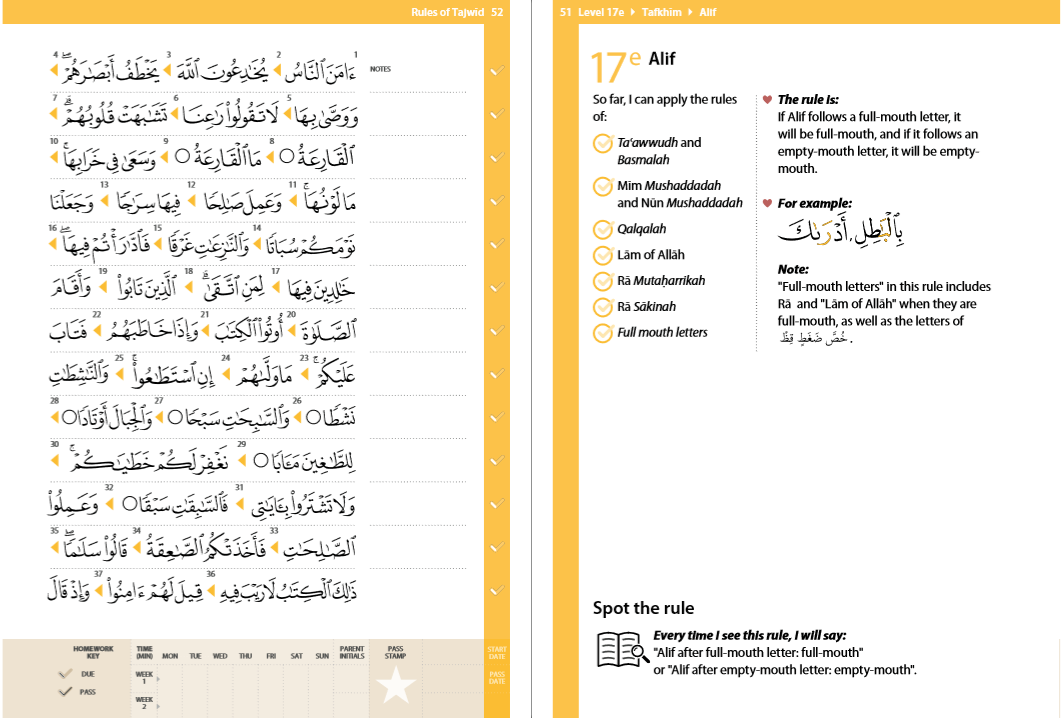 Rules of Tajwīd 52
1 ءَامَنَ ٱلنَّاسُ 2 يُخَٰدِعُونَ ٱللَّهَ 3 يَخْطَفُ أَبْصَٰرَهُمْۖ 4
NOTES
وَوَصَّىٰ بِهَا 5 لَا تَقُولُوا۟ رَٰعِنَا 6 تَشَٰبَهَتْ قُلُوبُهُمْۗ 7
ٱلْقَارِعَةُ ○ 8 مَا ٱلْقَارِعَةُ ○ 9 وَسَعَىٰ فِى خَرَابِهَآۚ 10
مَا لَوْنُهَاۚ 11 وَعَمِلَ صَٰلِحًا 12 فِيهَا سِرَٰجًا 13 وَجَعَلْنَا
نَوْمَكُمْ سُبَاتًا 14 وَٱلنَّٰزِعَٰتِ غَرْقًا 15 فَٱدَّٰرَْٰٔتُمْ فِيهَاۖ 16
خَٰلِدِينَ فِيهَا 17 لِمَنِ ٱتَّقَىٰۗ 18 ٱلَّذِينَ تَابُوا۟ 19 وَأَقَامَ
ٱلصَّلَوٰةَ 20 أُوتُوا۟ ٱلْكِتَٰبَ 21 وَإِذَا خَاطَبَهُمُ 22 فَتَابَ
عَلَيْكُمْۚ 23 مَا وَلَّىٰهُمْ 24 إِنِ ٱسْتَطَٰعُوا۟ۚ 25 وَٱلنَّٰشِطَٰتِ
نَشْطًا ○ 26 وَٱلسَّٰبِحَٰتِ سَبْحًا ○ 27 وَٱلْجِبَالَ أَوْتَادًا ○ 28
لِلطَّٰغِينَ مَـَٔابًا ○ 29 نَغْفِرْ لَكُمْ خَطَٰيَٰكُمْۚ 30
وَلَا تَشْتَرُوا۟ بِـَٔايَٰتِى 31 فَٱلسَّٰبِقَٰتِ سَبْقًا ○ 32 وَعَمِلُوا۟
ٱلصَّٰلِحَٰتِ 33 فَأَخَذَتْكُمُ ٱلصَّٰعِقَةُ 34 قَالُوا۟ سَلَٰمًاۖ 35
ذَٰلِكَ ٱلْكِتَٰبُ لَا رَيْبَ فِيهِ 36 قِيلَ لَهُمْ ءَامِنُوا۟ 37 وَإِذْ قَالَ
HOMEWORK KEY
DUE
PASS
TIME (MIN) MON TUE WED THU FRI SAT SUN PARENT INITIALS PASS STAMP START DATE
WEEK 1
PASS DATE
WEEK 2
51 Level 17e Tafkhim Alif
17e Alif
So far, I can apply the rules
of:
Ta'awwudh and
Basmalah
Mīm Mushaddadah
and Nūn Mushaddadah
Qalqalah
Lām of Allāh
Rā Mutaḥarrikah
Rā Sākinah
Full mouth letters
The rule is:
If Alif follows a full-mouth letter, it
will be full-mouth, and if it follows an
empty-mouth letter, it will be empty-
mouth.
For example:
بِٱلْبَٰطِلِ, أَدْرَىٰكَ
Note:
"Full-mouth letters" in this rule includes
Rā and "Lām of Allāh" when they are
full-mouth, as well as the letters of
خُصَّ ضَغْطٍ قِظْ .
Spot the rule
Every time I see this rule, I will say:
"Alif after full-mouth letter: full-mouth"
or "Alif after empty-mouth letter: empty-mouth".